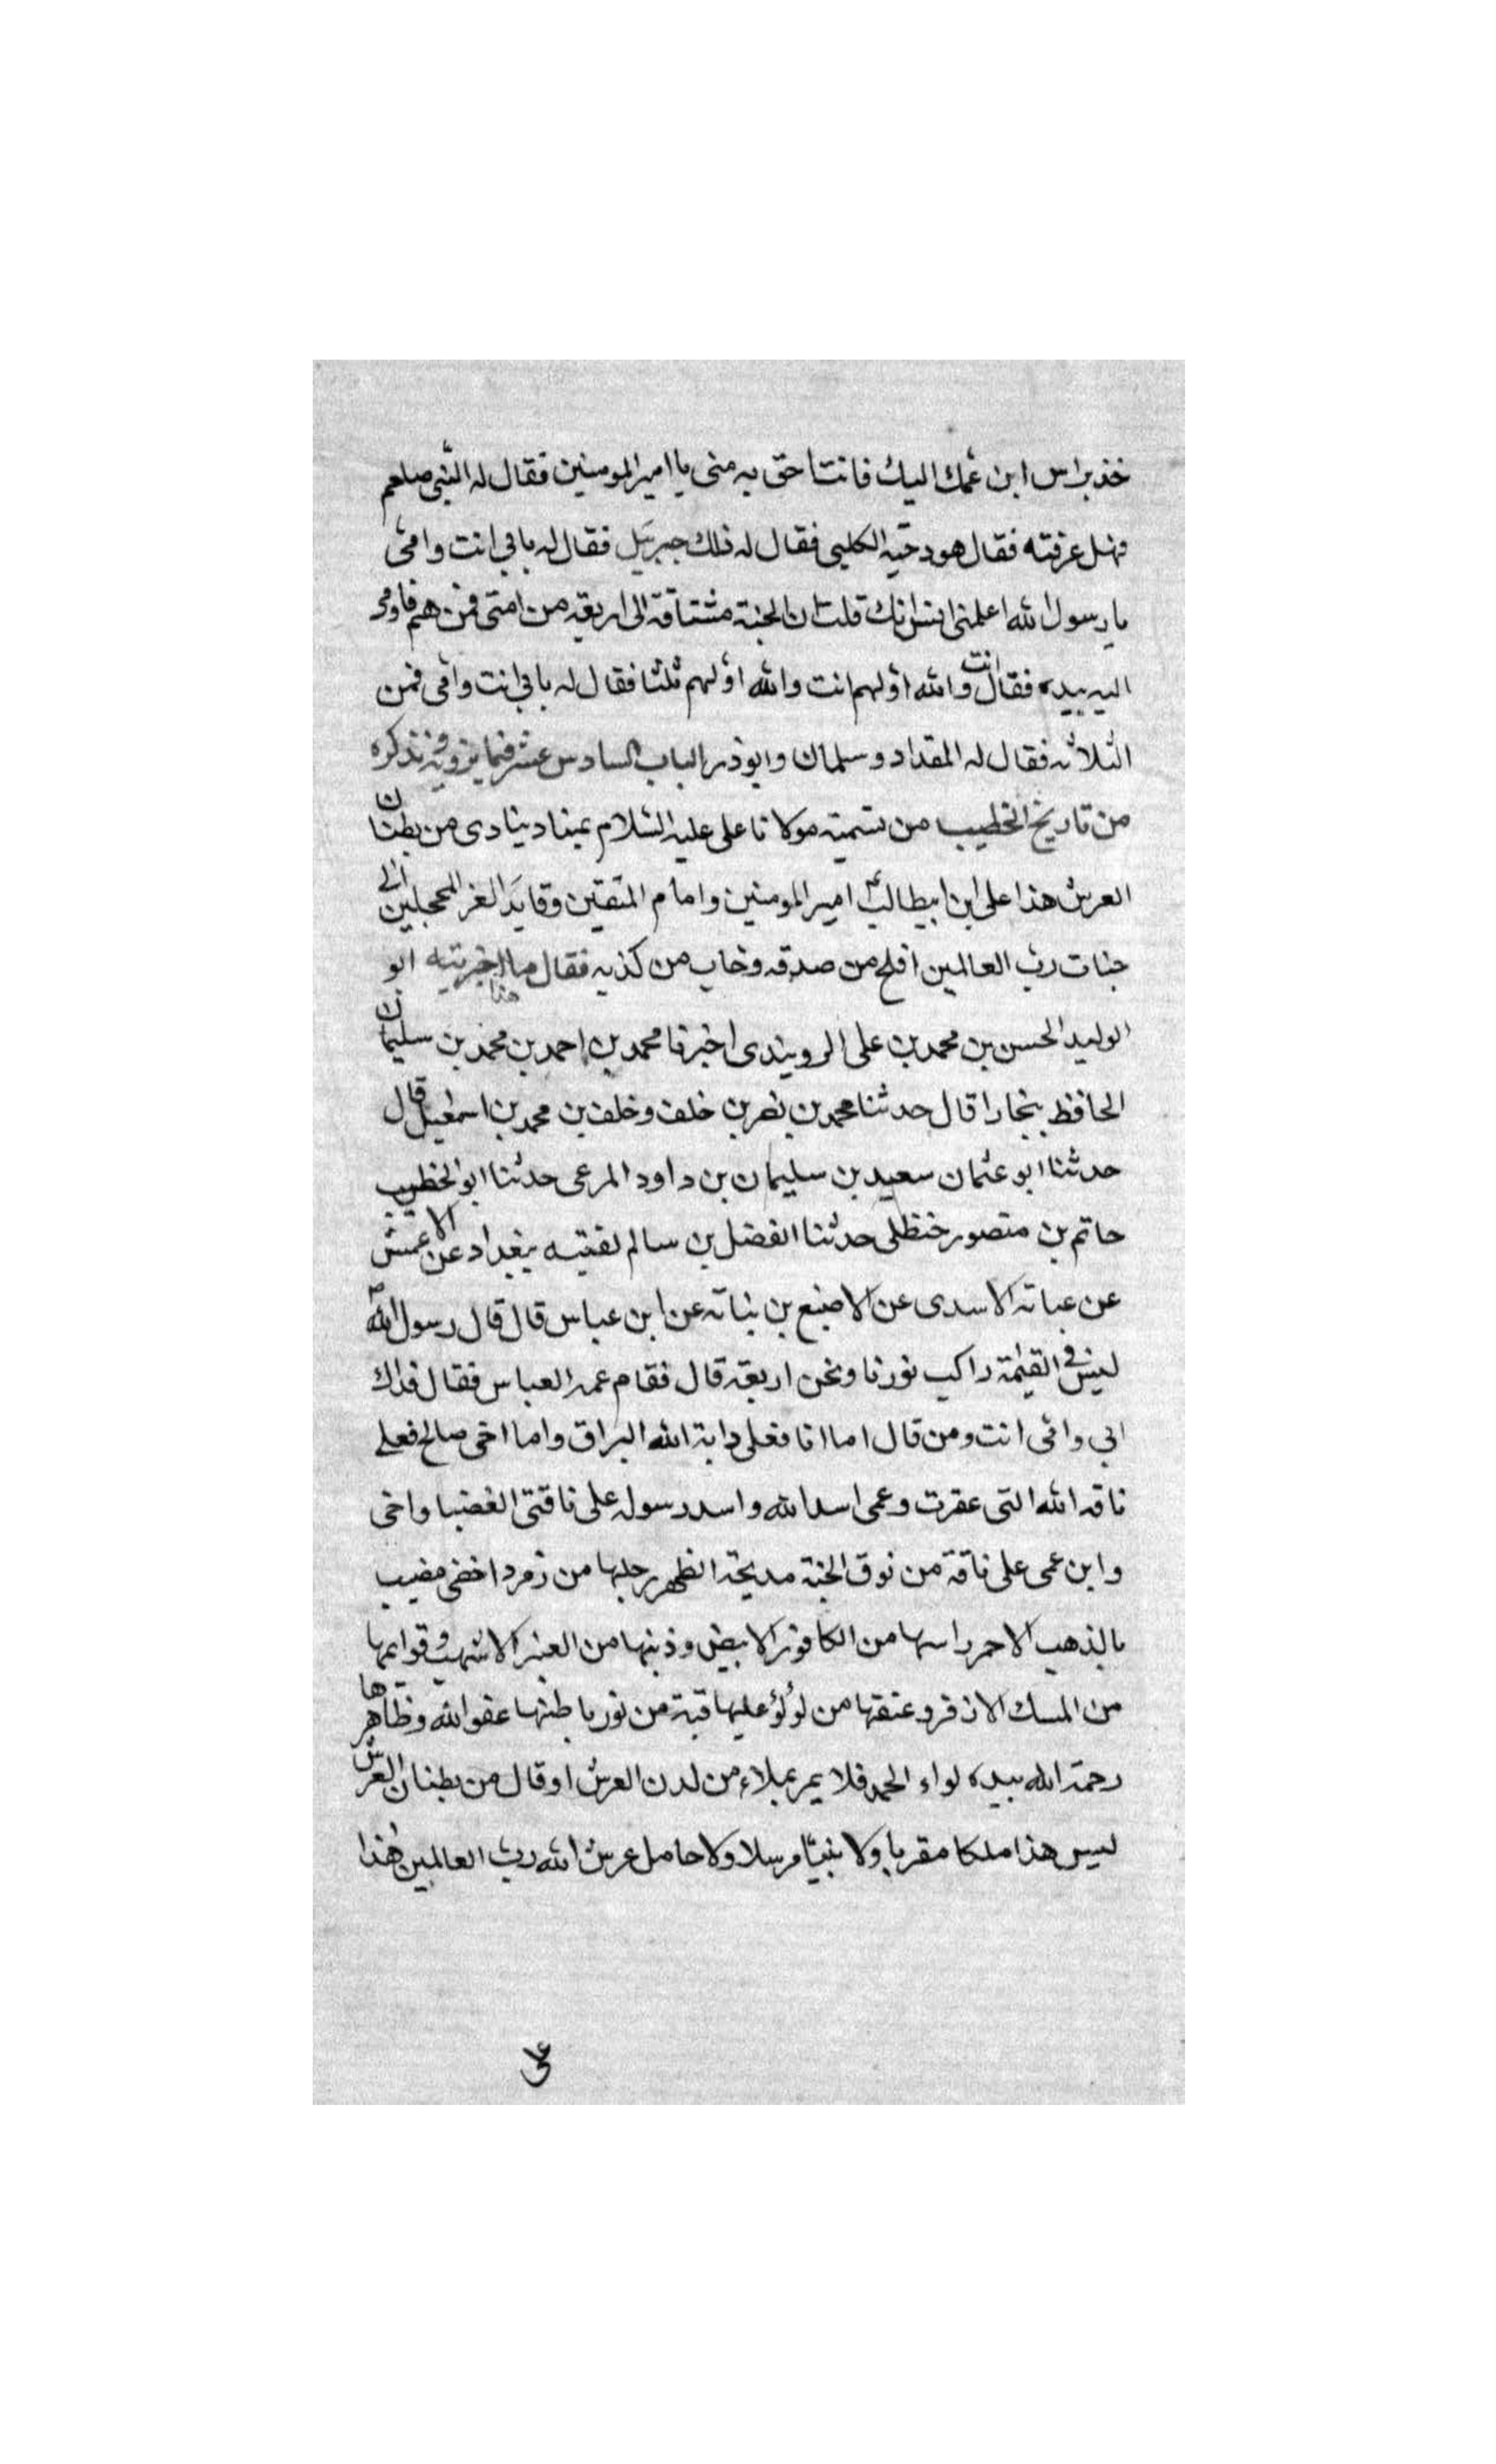 خذ براس ابن عمك اليك فانت احق به منى يا امير المومنين فقال له النبى صلعم
فهل عرفته فقال هو دحية الكلبى فقال له ذلك جبرئيل فقال له بابى انت وامى
يا رسول الله اعلمنى انس انك قلت ان الجنة مشتاقة الى اربعة من امتى فمن هم فاومى
اليه بيده فقال انت والله اولهم انت والله اولهم ثلثا فقال له بابى انت وامى فمن
الثلاثه فقال له المقداد وسلمان وابوذر الباب السادس عشر فيما نرويه ونذكره
من تاريخ الخطيب من تسميته مولانا على عليه السلام بمناد ينادى من بطنان
العرش هذا على ابن ابيطالب امير المومنين وامام المتقين وقايد الغر المحجلين الى
جنات رب العالمين افلح من صدقه وخاب من كذبه فقال ما هذا اخبرتيه ابو
الوليد الحسن بن محمد بن على الرويندى اخبرنا محمد بن احمد بن محمد بن سليمان
الحافظ ببخارا قال حدثنا محمد بن نصر بن خلف وخلف بن محمد بن اسمعيل قال
حدثنا ابو عثمان سعيد بن سليمان بن داود المرعى حدثنا ابو الخطيب
حاتم بن منصور حنظلى حدثنا الفضل بن سالم لقيته ببغداد عن الاعمش
عن عباته الاسدى عن الاصبع بن بناته عن ابن عباس قال قال رسول الله ص
ليس فى القيٰمة راكب نورنا ونحن اربعة قال فقام عمه العباس فقال فداك
ابى وامى انت ومن قال اما انا فعلى دابة الله البراق واما اخى صالح فعلى
ناقة الله التى عقرت وعمى اسد الله واسد رسوله على ناقتى الغضبا واخى
وابن عمى على ناقة من نوق الجنة مدبجة الظهر رجلها من زمرد اخضر مضبب
بالذهب الاحمر راسها من الكافور الابيض وذنبها من العنبر الاشهب وقوايمها
من المسك الاذفر وعنقها من لؤلؤ عليها قبة من نور باطنها عفو الله وظاهرها
رحمة الله بيده لواء الحمد فلا يمر بملاء من لدن العرش او قال من بطنان العرش
ليس هذا ملكا مقربا ولا نبيا مرسلا ولا حامل عرش الله رب العالمين هذا
على